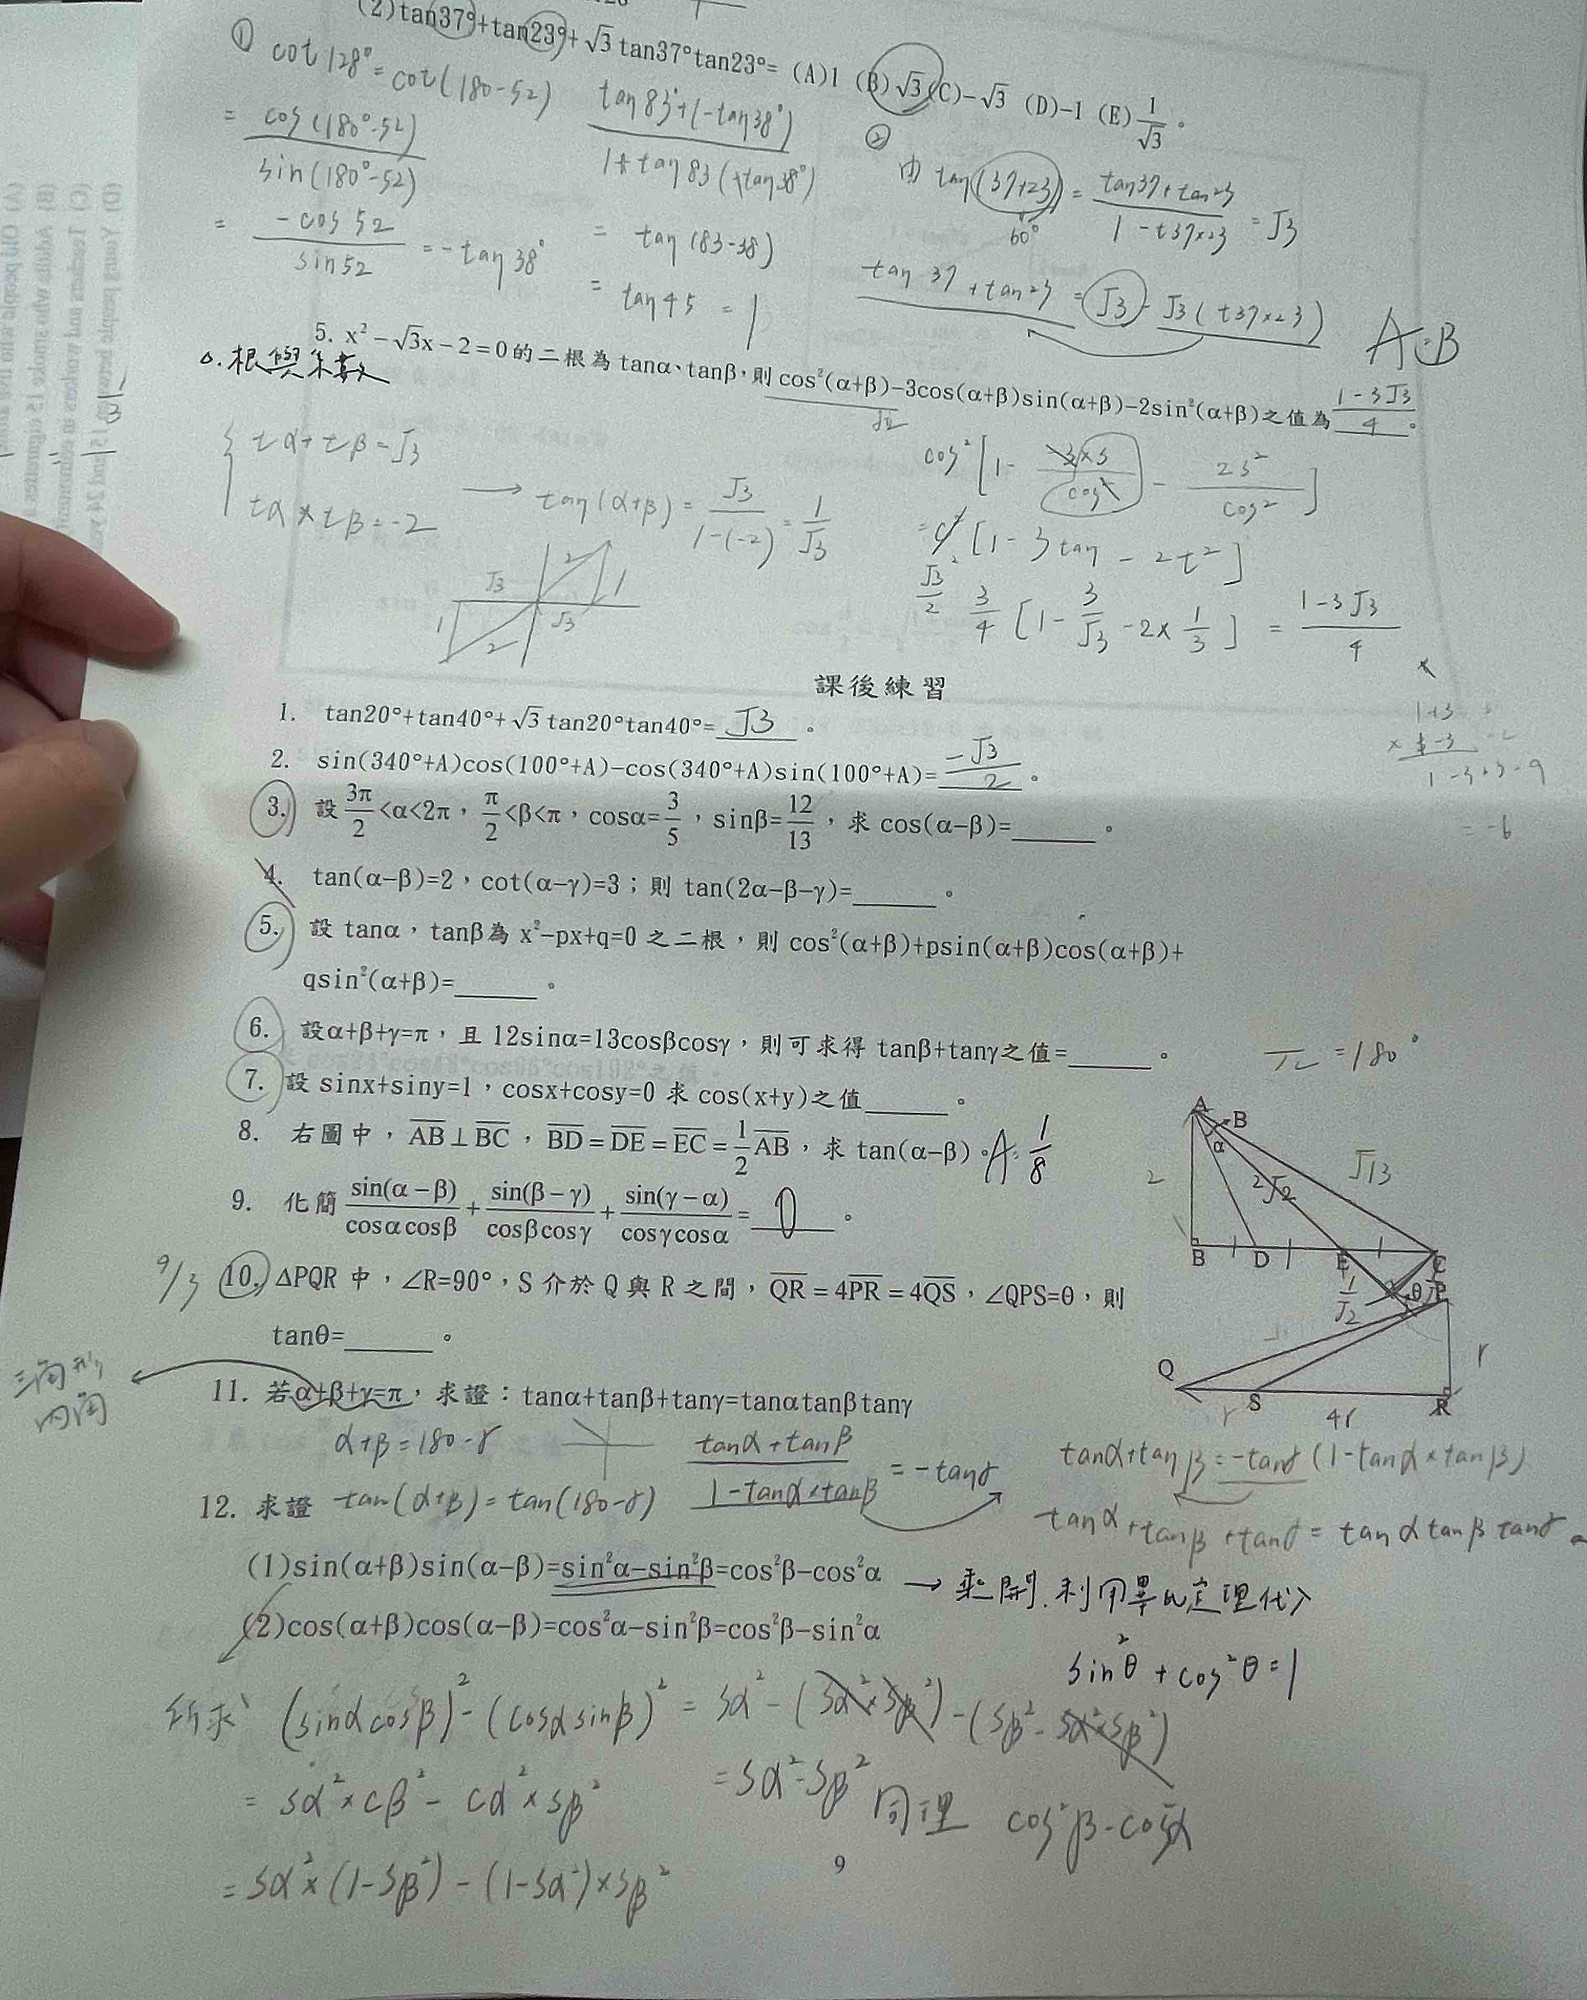 (2)tan37°+tan23°+√3 tan37°tan23°= (A)1 (B)√3 (C)-√3 (D)-1 (E)1/√3。
① cot128°=cot(180-52)
= cos(180°-52)/sin(180°-52)
= -cos52/sin52 = -tan38°
tan83°+(-tan38°)/1+tan83(+tan38°)
= tan(83-38)
= tan45 = 1
② 由 tan(37+23) = tan37+tan23/1-t37×23 = √3
60°
tan37+tan23 = √3 - √3(t37×23)
A:B
5. x²-√3x-2=0的二根為 tanα、tanβ,則 cos²(α+β)-3cos(α+β)sin(α+β)-2sin²(α+β)之值為 1-3√3/4。
△.根與係數
tα+tβ=√3
tα×tβ=-2
→ tan(α+β)= √3/1-(-2) = 1/√3
= c²[1-3tan-2t²]
√3/2
3/4[1-3/√3-2×1/3] = 1-3√3/4
√3 2 1
1 2 √3
課後練習
1. tan20°+tan40°+√3 tan20°tan40°= √3。
2. sin(340°+A)cos(100°+A)-cos(340°+A)sin(100°+A)= -√3/2。
3. 設 3π/2<α<2π,π/2<β<π,cosα=3/5,sinβ=12/13,求 cos(α-β)=______。
4. tan(α-β)=2,cot(α-γ)=3;則 tan(2α-β-γ)=______。
5. 設 tanα,tanβ為 x²-px+q=0 之二根,則 cos²(α+β)+psin(α+β)cos(α+β)+
qsin²(α+β)=______。
6. 設α+β+γ=π,且 12sinα=13cosβcosγ,則可求得 tanβ+tanγ之值=______。
π=180°
7. 設 sinx+siny=1,cosx+cosy=0 求 cos(x+y)之值______。
8. 右圖中,AB⊥BC,BD=DE=EC=1/2AB,求 tan(α-β)。A: 1/8
9. 化簡 sin(α-β)/cosαcosβ+sin(β-γ)/cosβcosγ+sin(γ-α)/cosγcosα= 0。
A β α
2 2√2 √13
B D E C
9/3 10. ΔPQR 中,∠R=90°,S 介於 Q 與 R 之間,QR=4PR=4QS,∠QPS=θ,則
tanθ=______。
1/√2 θ P
Q S R
r 4r r
三角形
內角
11. 若α+β+γ=π,求證:tanα+tanβ+tanγ=tanαtanβtanγ
α+β=180-γ
tan(α+β)=tan(180-γ)
tanα+tanβ/1-tanα×tanβ = -tanγ
tanα+tanβ=-tanγ(1-tanα×tanβ)
tanα+tanβ+tanγ=tanαtanβtanγ
12. 求證
(1)sin(α+β)sin(α-β)=sin²α-sin²β=cos²β-cos²α
→ 乘開.利用畢氏定理代入
(2)cos(α+β)cos(α-β)=cos²α-sin²β=cos²β-sin²α
sin²θ+cos²θ=1
所求 (sinαcosβ)²-(cosαsinβ)² = sα²-(sα²×sβ²)-(sβ²-sα²×sβ²)
= sα²×cβ²-cα²×sβ²
= sα²-sβ² 同理 cos²β-cos²α
= sα²×(1-sβ²)-(1-sα²)×sβ²
9